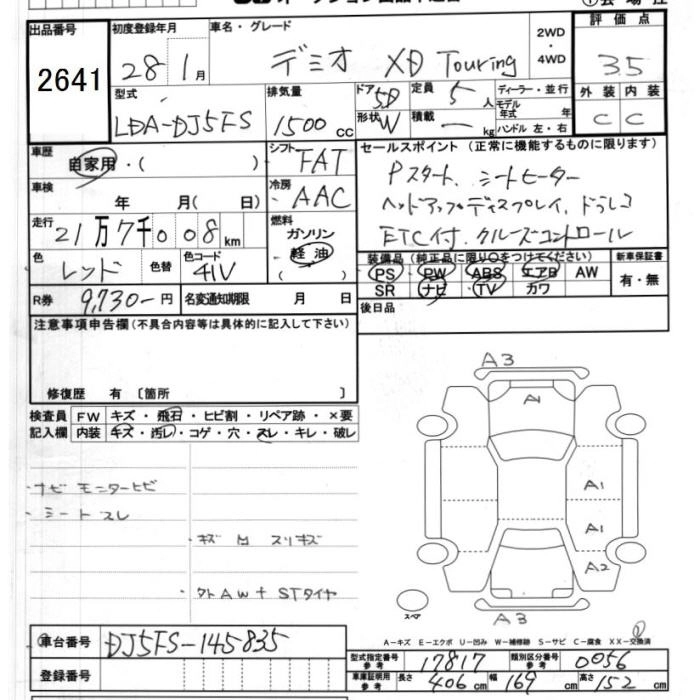 出品番号 初度登録年月 車名・グレード 2WD・4WD 評価点
2641 28 1月 デミオ XD Touring 3.5
型式 排気量 ドア 5D 定員 5人 ディーラー・並行 外装 内装
LDA-DJ5FS 1500cc 形状 W 積載 ー kg モデル年式 年 C C
ハンドル 左・右
車歴 シフト セールスポイント (正常に機能するものに限ります)
自家用・( ) FAT Pスタート、シートヒーター
車検 冷房 ヘッドアップディスプレイ、ドラレコ
年 月( 日) AAC ETC付、クルーズコントロール
走行 燃料
21万7千008km ガソリン
色 色替 色コード ・軽油 装備品 (純正品に限り○をつけてください) 新車保証書
レッド 41V ・( ) PS PW ABS エアB AW 有・無
R券 9,730-円 名変通知期限 月 日 SR ナビ TV カワ
注意事項申告欄(不具合内容等は具体的に記入して下さい) 後日品
修復歴 有 〔箇所 〕
検査員 FW キズ・飛石・ヒビ割・リペア跡・×要
記入欄 内装 キズ・汚レ・コゲ・穴・スレ・キレ・破レ
・ナビ モニターヒビ
・シート スレ
・キズ 凹 スリキズ
・タト AW + STタイヤ
A3
A1
A1
A1
A2
A3
スペア
A-キズ E-エクボ U-凹み W-補修跡 S-サビ C-腐食 XX-交換済
車台番号 DJ5FS-145835
登録番号
型式指定番号 参考 17817 類別区分番号 参考 0056
車庫証明用 参考 長さ 406cm 幅 169cm 高さ 152cm